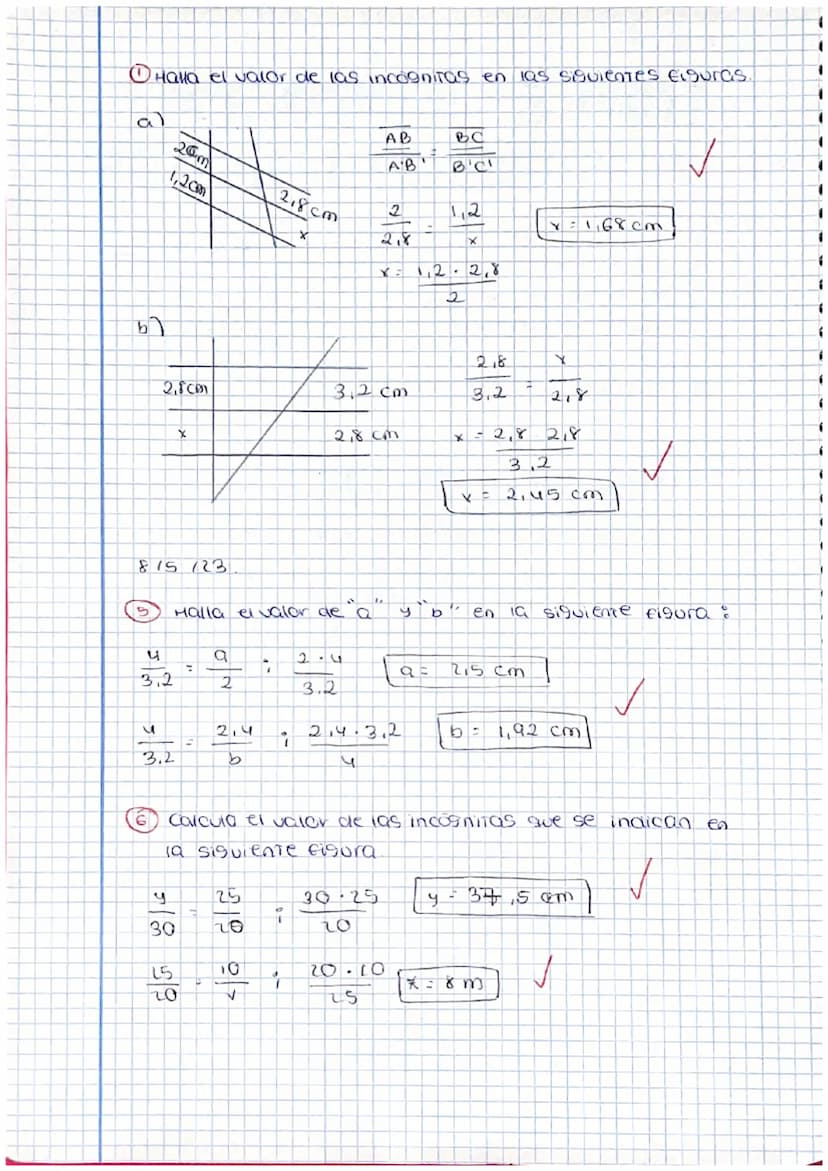 ① Halla el valor de las incógnitas en las siguientes figuras.
a)
2cm
1,2cm
2,8cm
x
AB/A'B' = BC/B'C'
2/2,8 = 1,2/x
x = 1,2 · 2,8/2
x = 1,68 cm
b)
2,8cm
3,2 cm
x
2,8 cm
2,8/3,2 = x/2,8
x = 2,8 2,8/3,2
x = 2,45 cm
8/5/23.
⑤ Halla el valor de "a" y "b" en la siguiente figura:
4/3,2 = a/2 ; 2·4/3,2
a = 2,5 cm
4/3,2 = 2,4/b ; 2,4·3,2/4
b = 1,92 cm
⑥ Calcula el valor de las incógnitas que se indican en
la siguiente figura
y/30 = 25/20 ; 30·25/20
y = 37,5 cm
25/20 = 10/x ; 20·10/25
x = 8 m